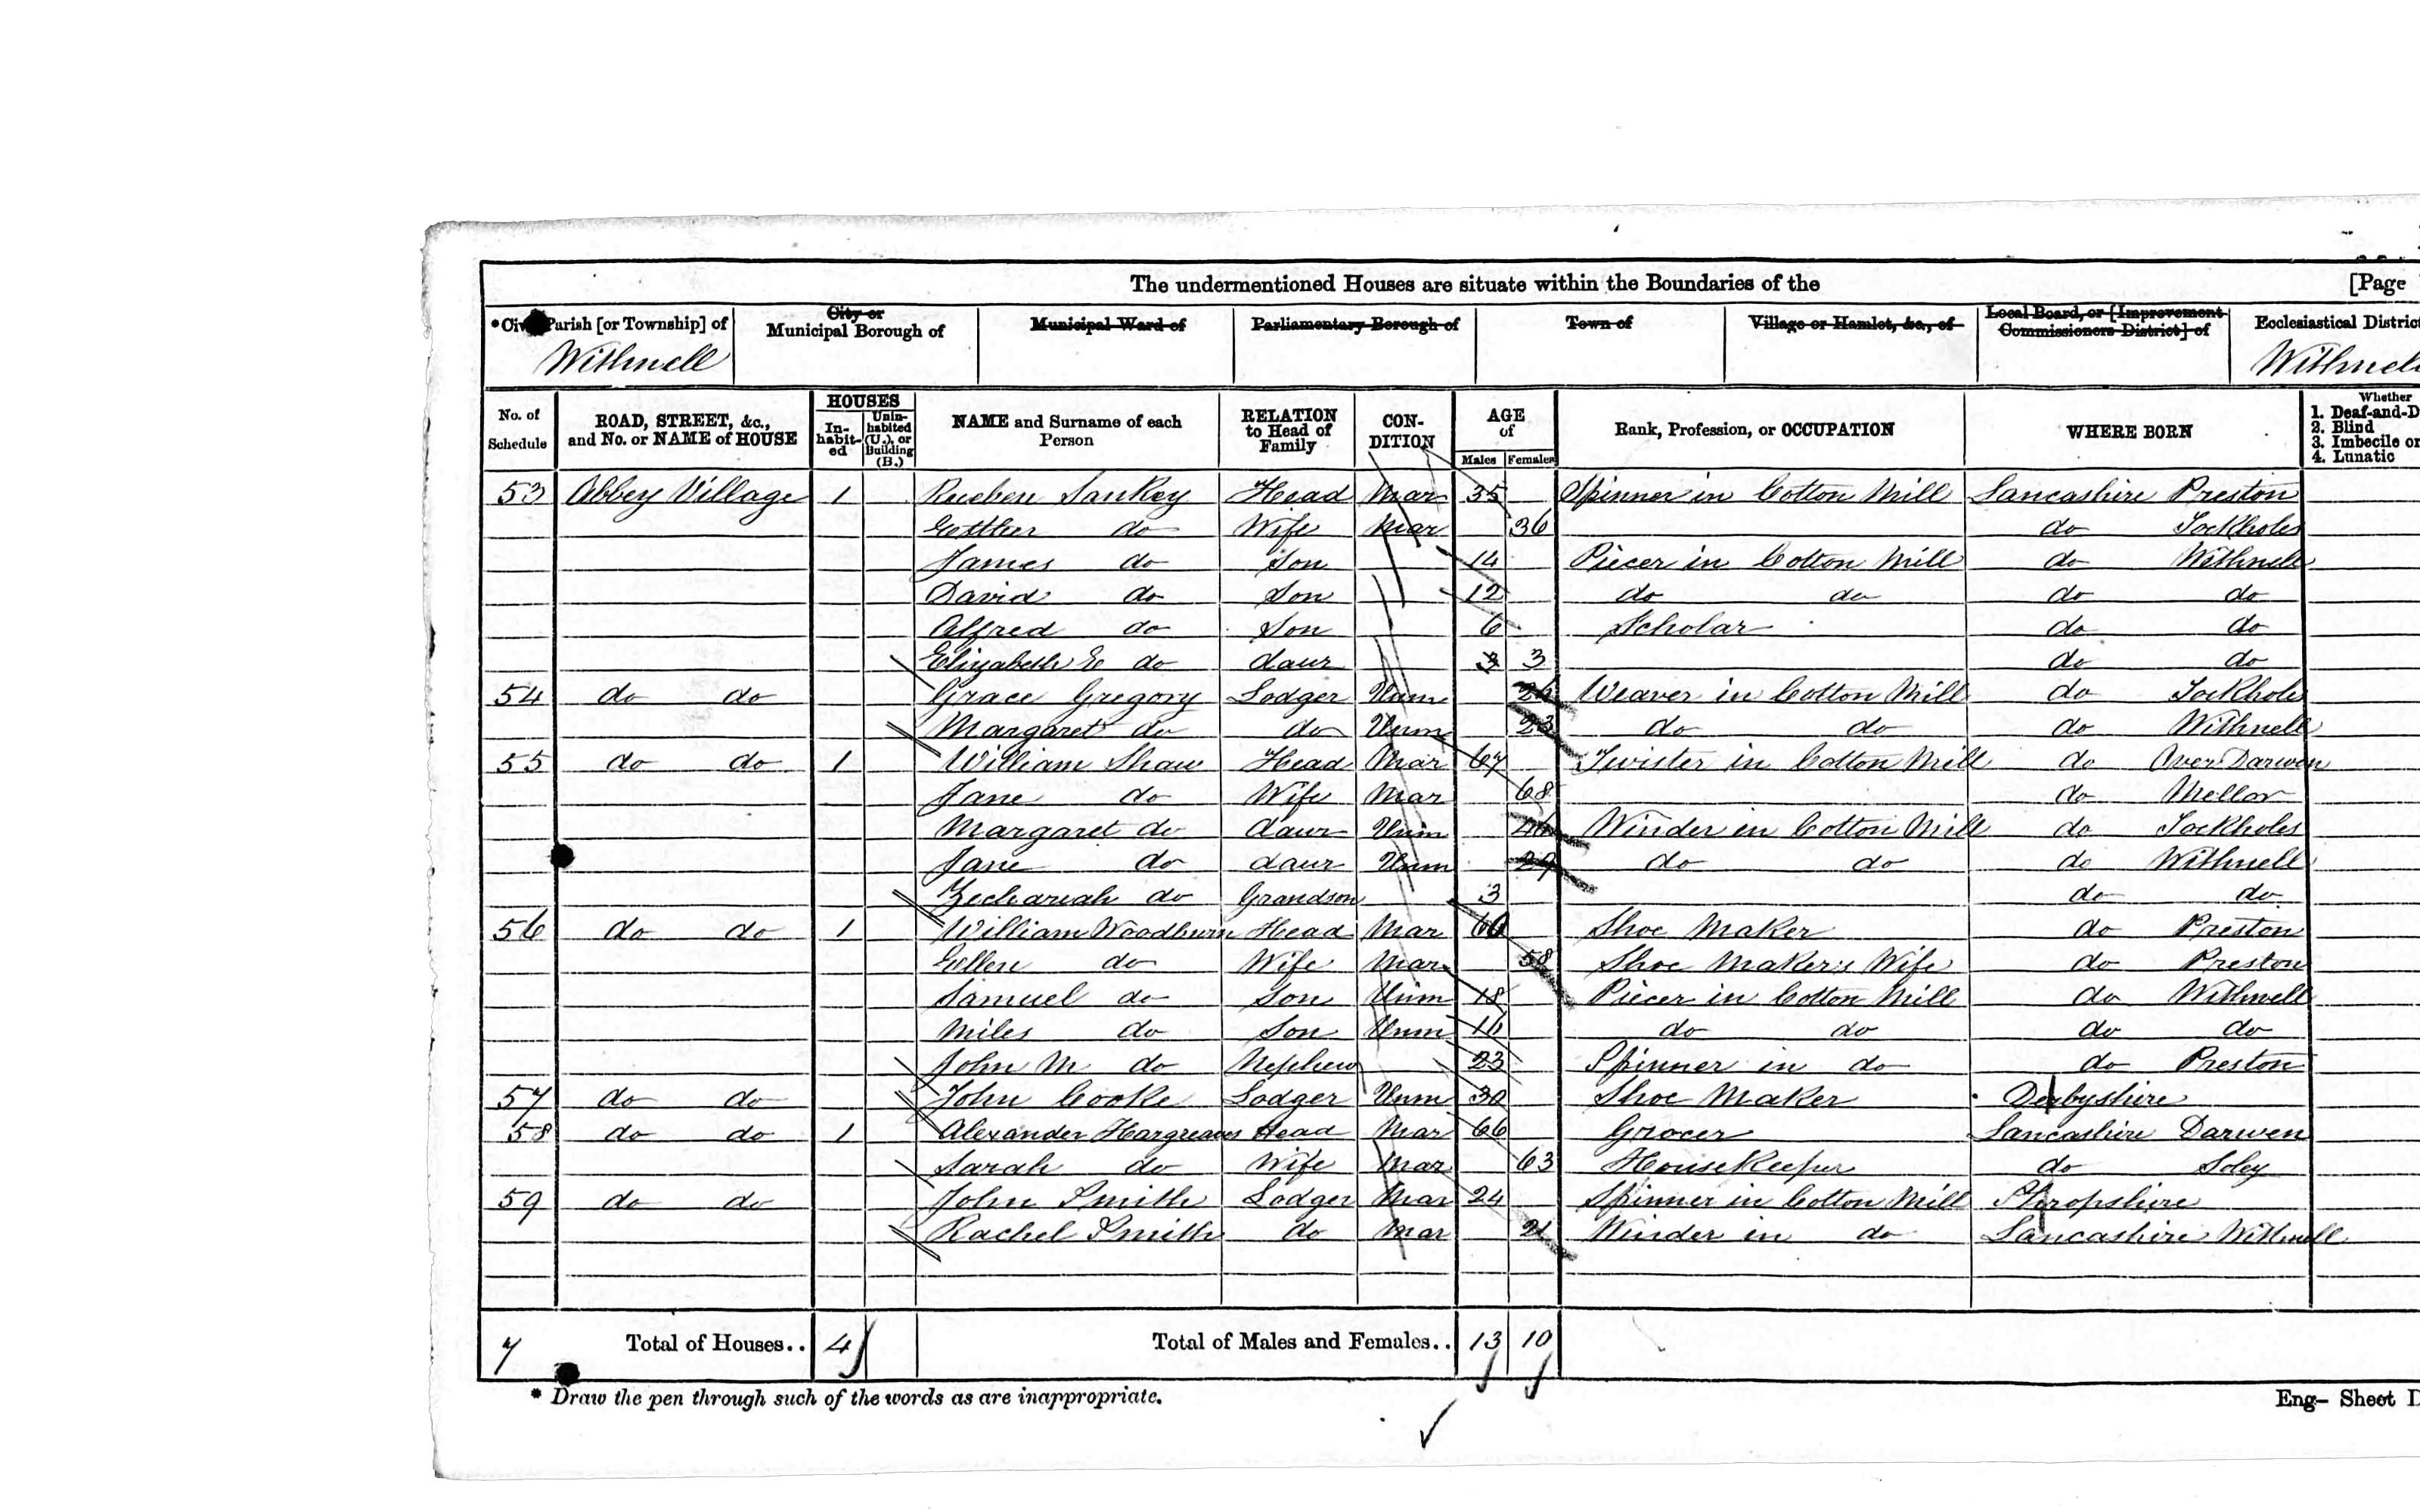 The undermentioned Houses are situate within the Boundaries of the [Page
*Civil Parish [or Township] of City or Municipal Borough of Municipal Ward of Parliamentary Borough of Town of Village or Hamlet, &c., of Local Board, or [Improvement Commissioners District] of Ecclesiastical District
Withnell Withnell
No. of Schedule ROAD, STREET, &c., and No. or NAME of HOUSE HOUSES In-habit-ed Unin-habited (U.), or Building (B.) NAME and Surname of each Person RELATION to Head of Family CON-DITION AGE of Males Females Rank, Profession, or OCCUPATION WHERE BORN Whether 1. Deaf-and-D 2. Blind 3. Imbecile or 4. Lunatic
53 Abbey Village 1 Rueben Sankey Head Mar 35 Spinner in Cotton Mill Lancashire Preston
Esther do Wife Mar 36 do Tockholes
James do Son 14 Piecer in Cotton Mill do Withnell
David do Son 12 do do do do
Alfred do Son 6 Scholar do do
Elizabeth E do daur 3 3 do do
54 do do Grace Gregory Lodger Unm Weaver in Cotton Mill do Tockholes
Margaret do do Unm 23 do do do Withnell
55 do do 1 William Shaw Head Mar 67 Twister in Cotton Mill do Over Darwen
Jane do Wife Mar 68 do Mellor
Margaret do daur Unm Winder in Cotton Mill do Tockholes
Jane do daur Unm 29 do do do Withnell
Zechariah do Grandson 3 do do
56 do do 1 William Woodburn Head Mar 60 Shoe Maker do Preston
Ellen do Wife Mar 58 Shoe Maker's Wife do Preston
Samuel do Son Unm 18 Piecer in Cotton Mill do Withnell
Miles do Son Unm do do do do
John M do Nephew 23 Spinner in do do Preston
57 do do John Cooke Lodger Unm 30 Shoe Maker Derbyshire
58 do do 1 Alexander Hargreaves Head Mar 66 Grocer Lancashire Darwen
Sarah do Wife Mar 63 HouseKeeper do
59 do do John Smith Lodger Mar 24 Spinner in Cotton Mill Shropshire
Rachel Smith do Mar 21 Winder in do Lancashire Withnell
7 Total of Houses.. 4 Total of Males and Females.. 13 10
* Draw the pen through such of the words as are inappropriate.
Eng- Sheet D